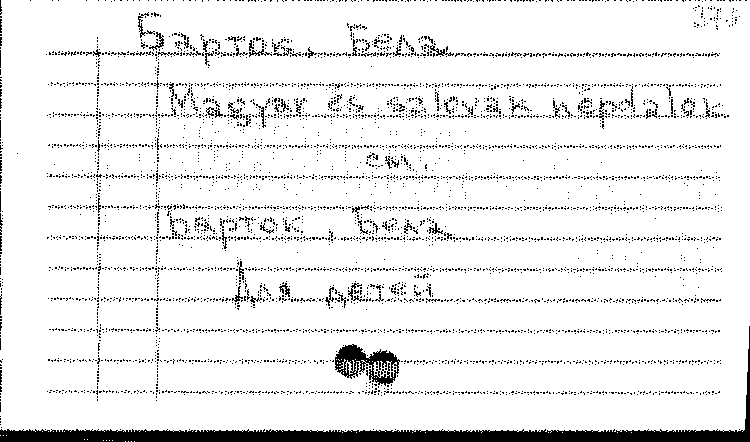 Барток, Бела
Magyar és salovák népdalok
см.
Барток, Бела
Для детей